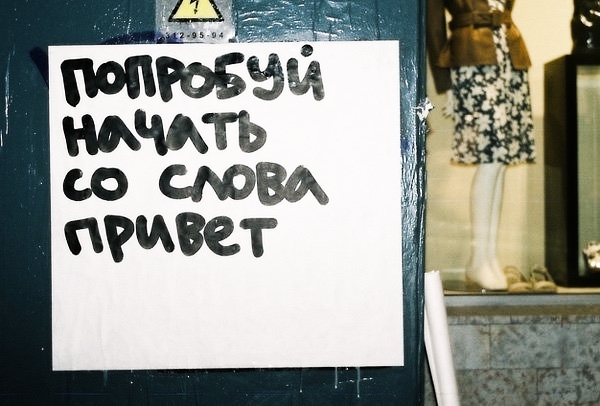 312-95-94
ПОПРОБУЙ
НАЧАТЬ
СО СЛОВА
ПРИВЕТ